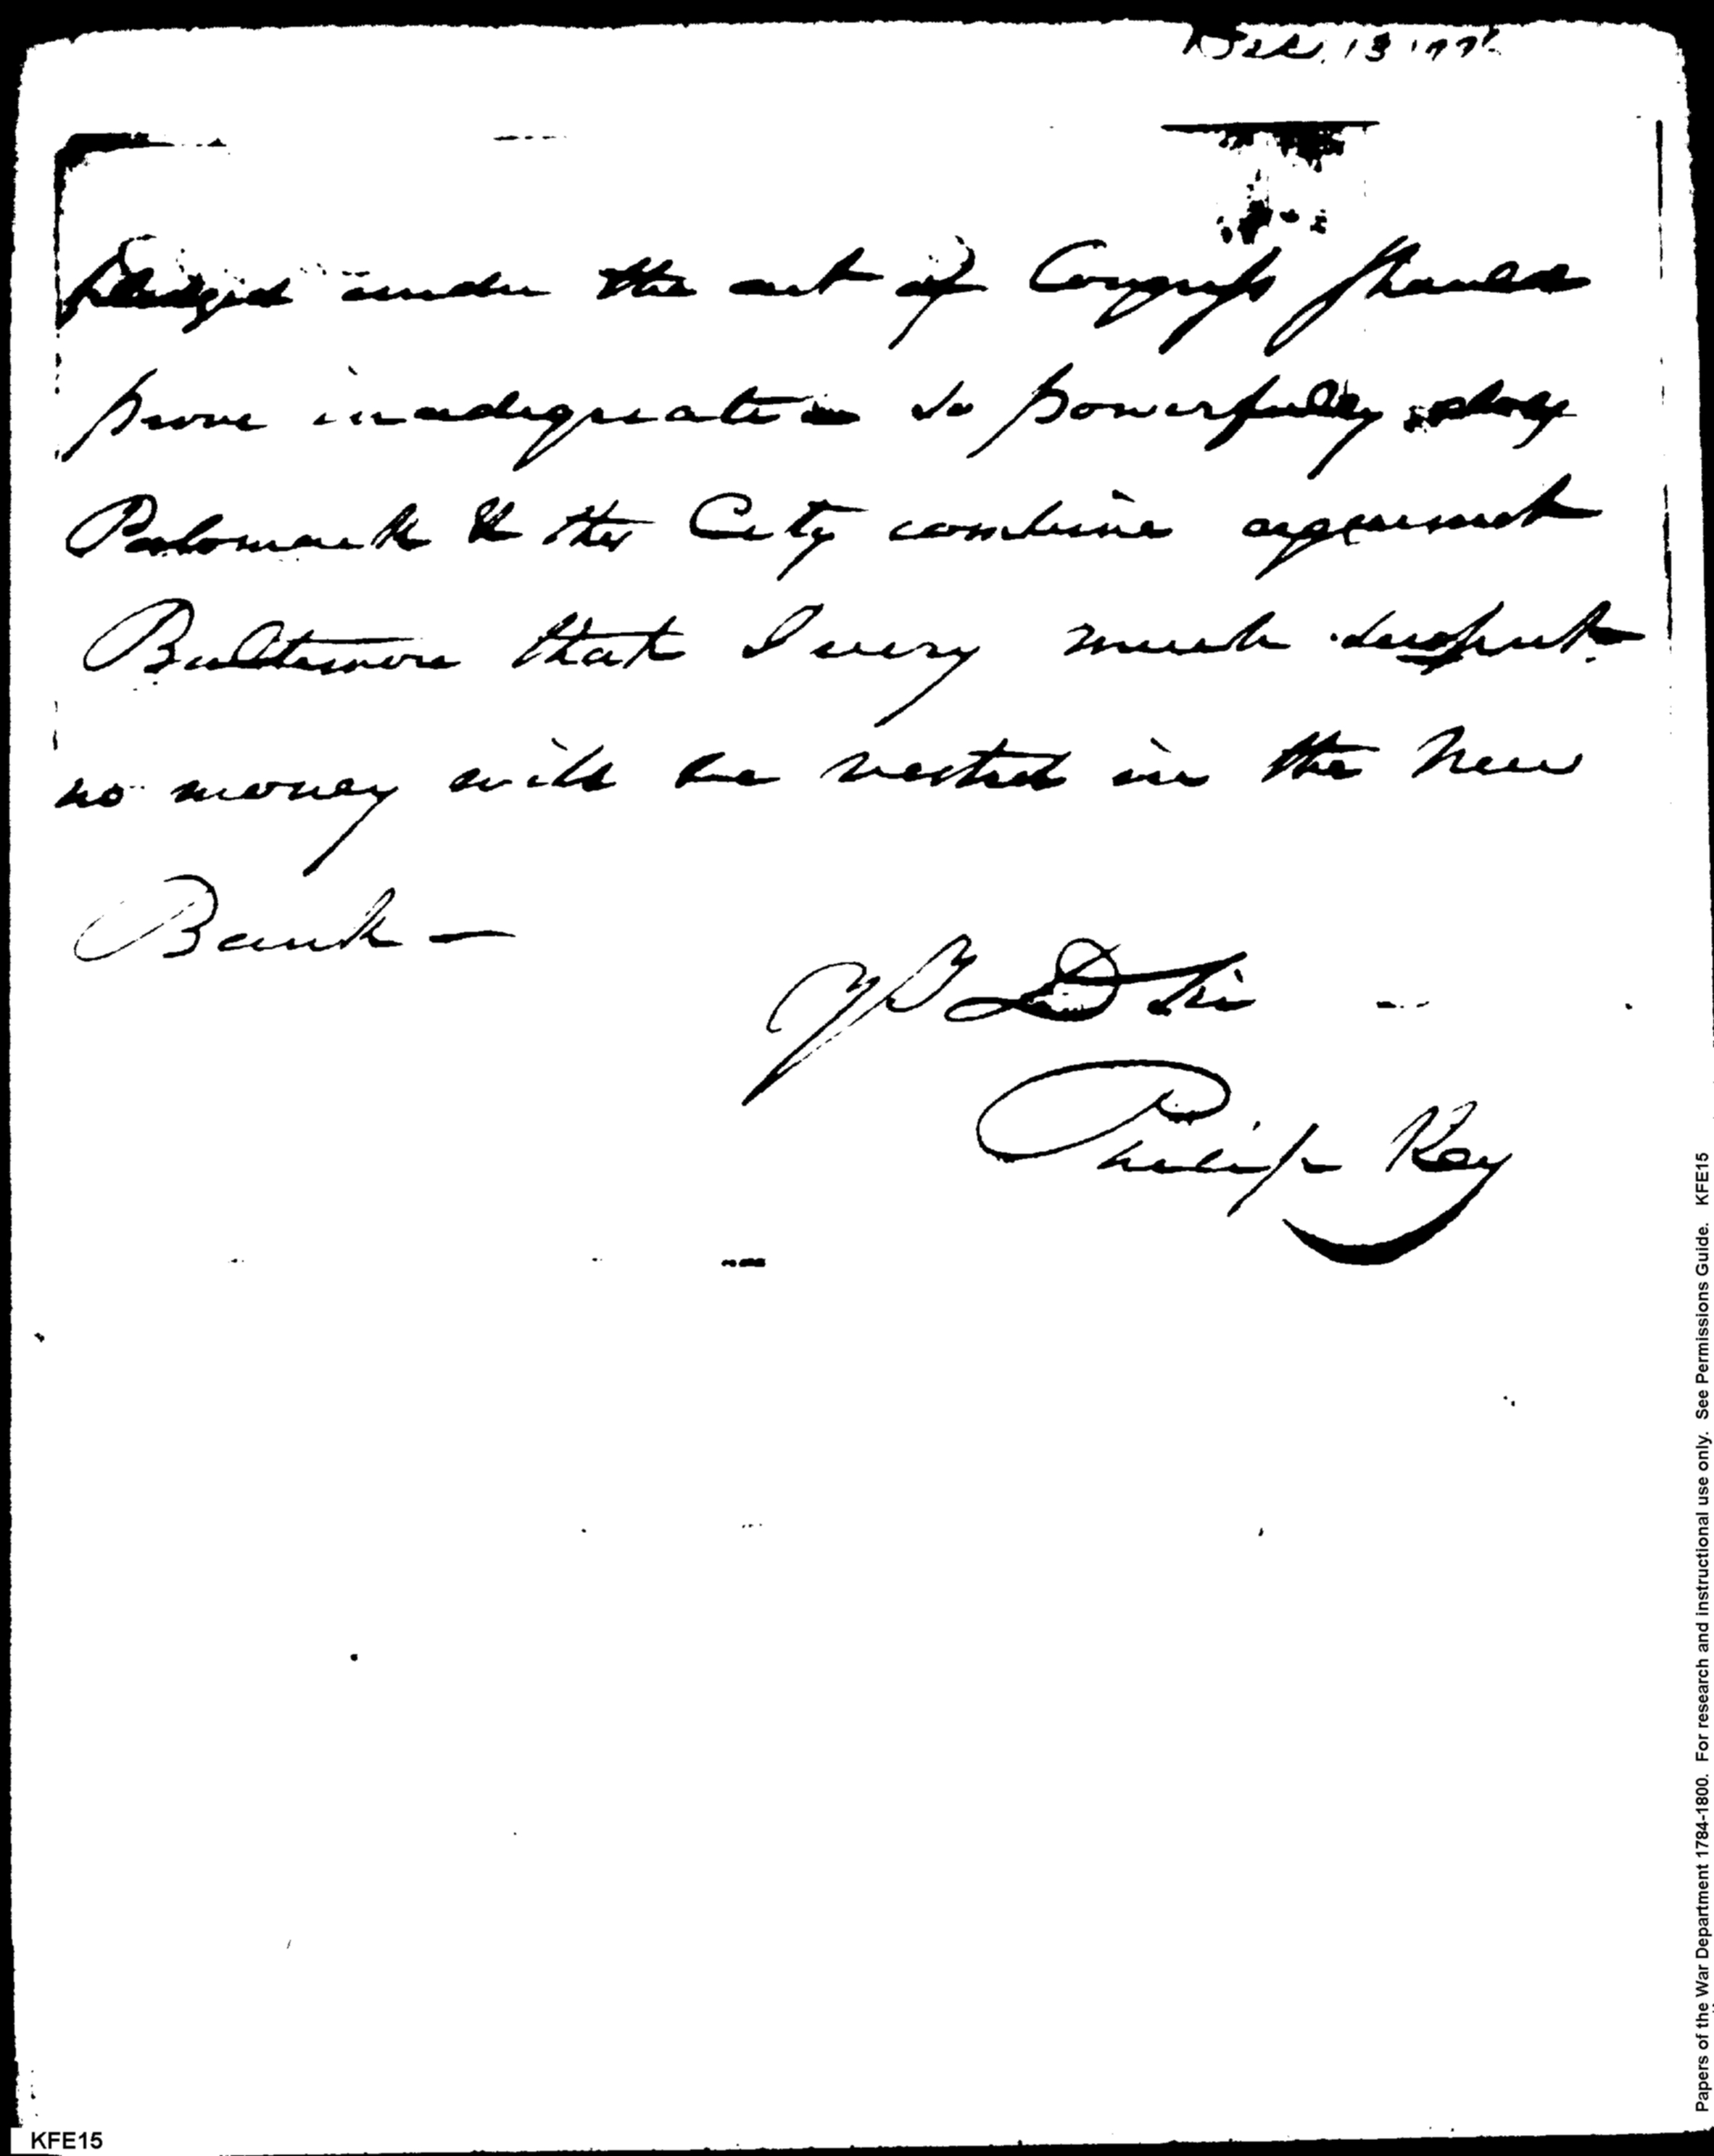 Dec. 13 179
under the act of Congress should
prove inadequate so powerfully do
Potomack & the City combine against
Baltimore that I very much suspect
no money will be vested in the New
Bank —
Philip Key
KFE15
Papers of the War Department 1784-1800. For research and instructional use only. See Permissions Guide. KFE15